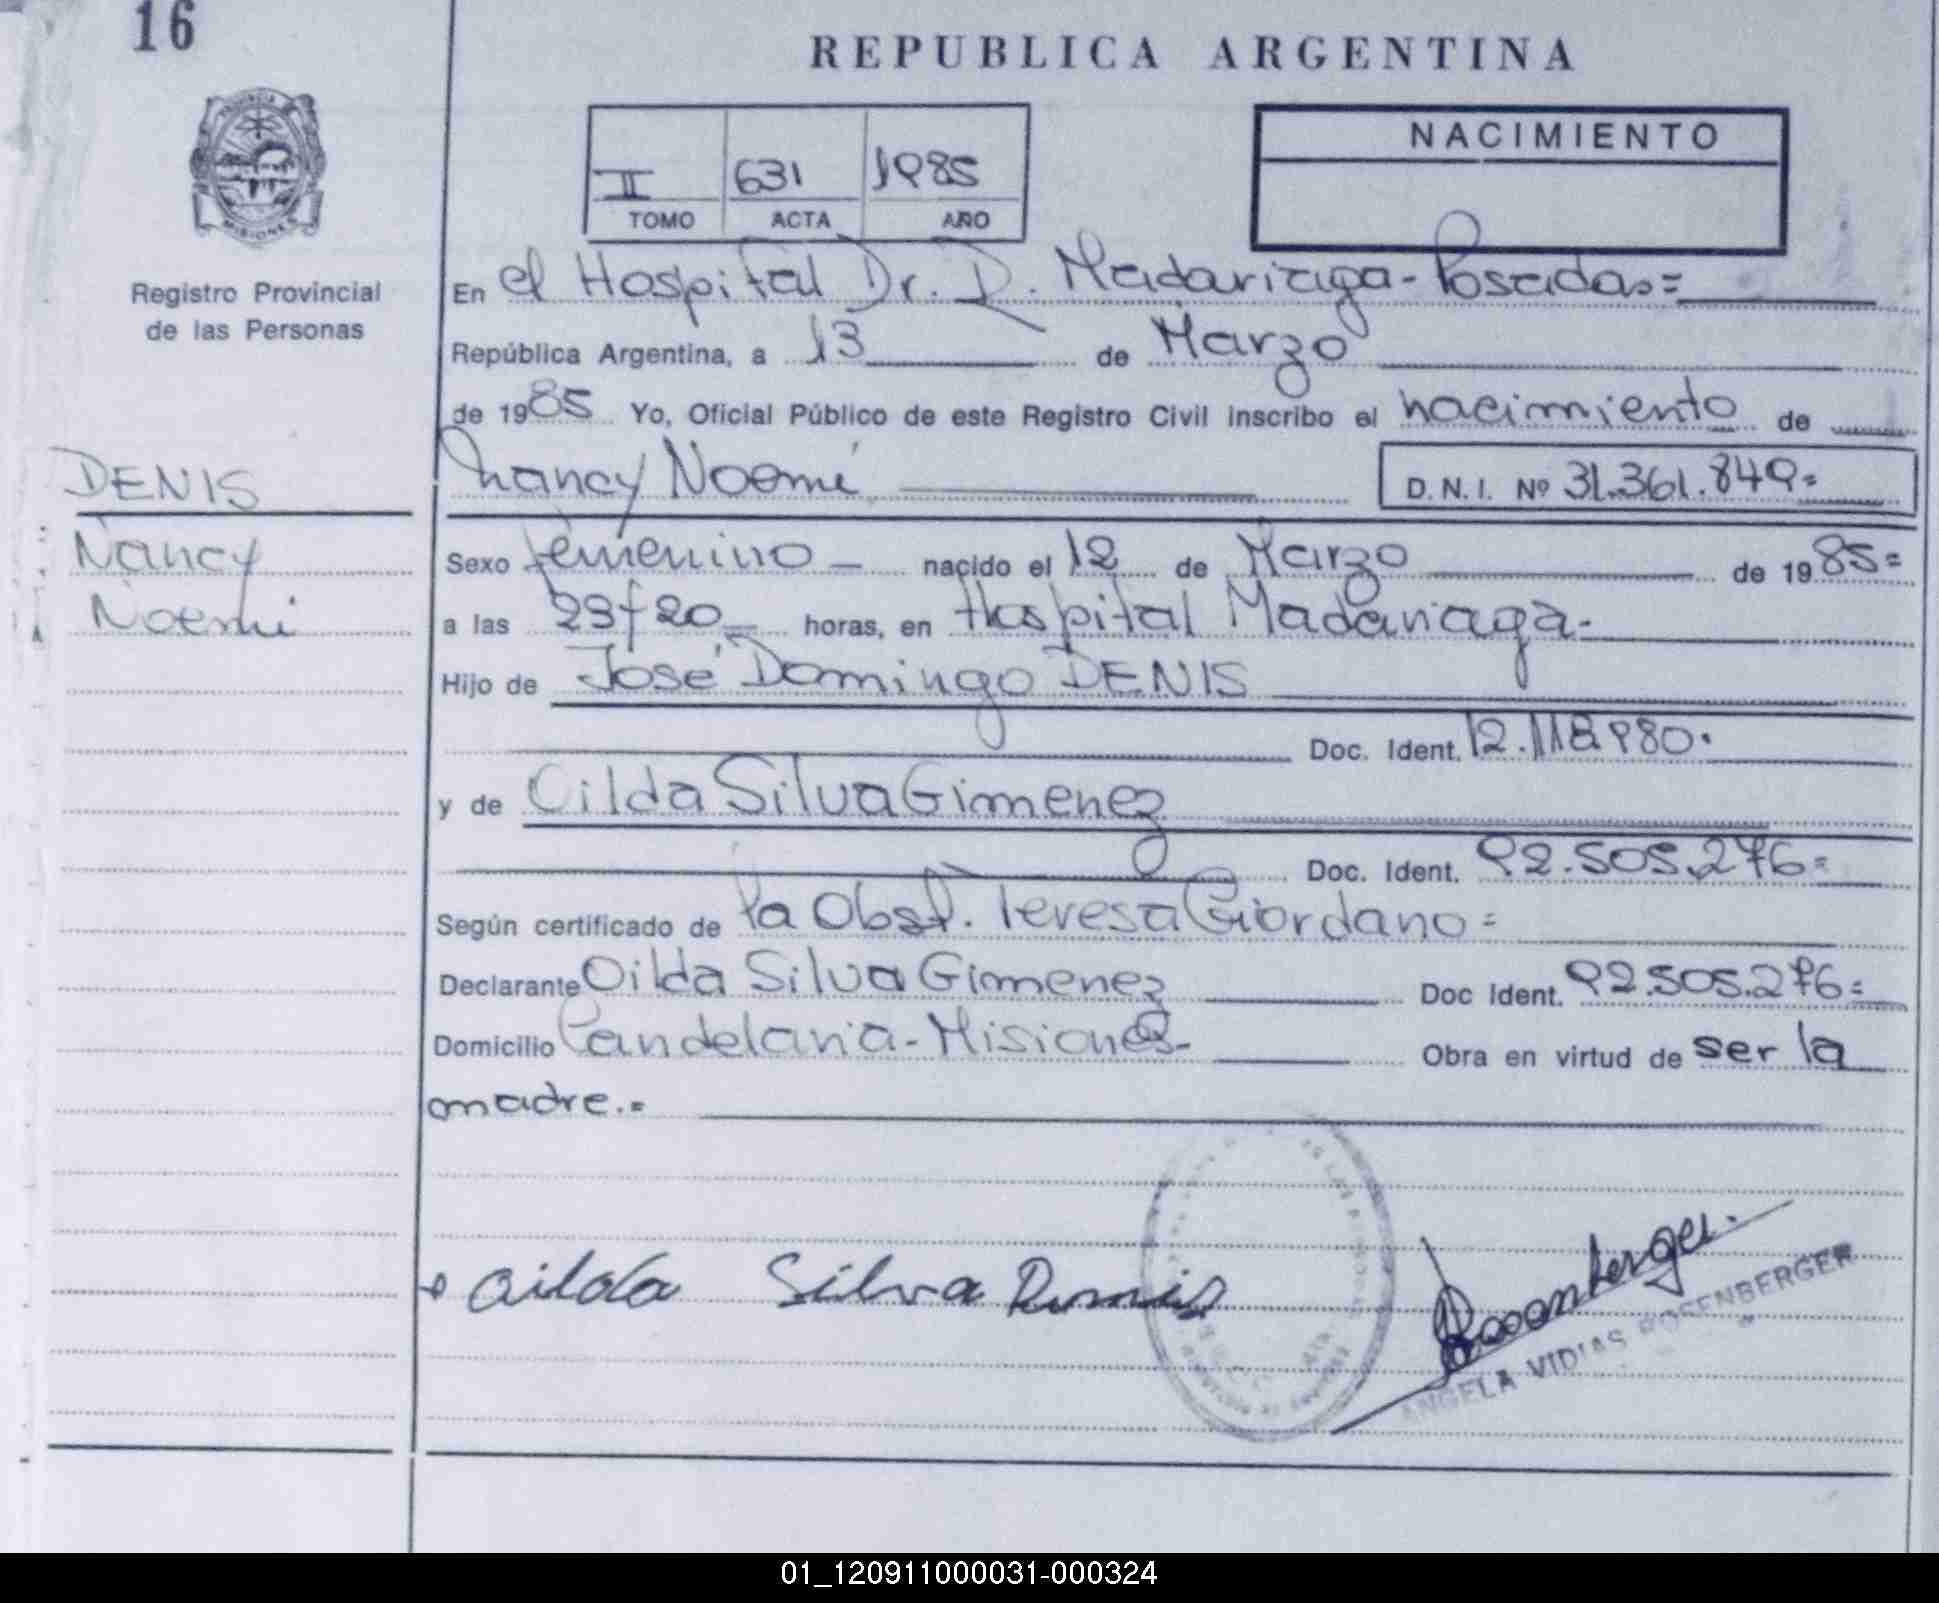 16
REPUBLICA ARGENTINA
PROVINCIA
MISIONES
Registro Provincial
de las Personas
II 631 1985
TOMO ACTA AÑO
NACIMIENTO
En el Hospital Dr. R. Madariaga - Posadas =
República Argentina, a 13 de Marzo
de 1985 Yo, Oficial Público de este Registro Civil inscribo el nacimiento de
Nancy Noemi D. N. I. Nº 31.361.849 =
DENIS
Nancy
Noemi
Sexo femenino nacido el 12 de Marzo de 1985 =
a las 23 y 20 horas, en Hospital Madariaga -
Hijo de José Domingo DENIS
Doc. Ident. 12.118.980.
y de Oilda Silva Gimenez
Doc. Ident. 92.505.276 =
Según certificado de la Obst. Teresa Giordano =
Declarante Oilda Silva Gimenez Doc Ident. 92.505.276 =
Domicilio Candelaria - Misiones - Obra en virtud de ser la
madre. =
Oilda Silva Denis
Rosenberger
ANGELA VIDIAS ROSENBERGER
01_120911000031-000324